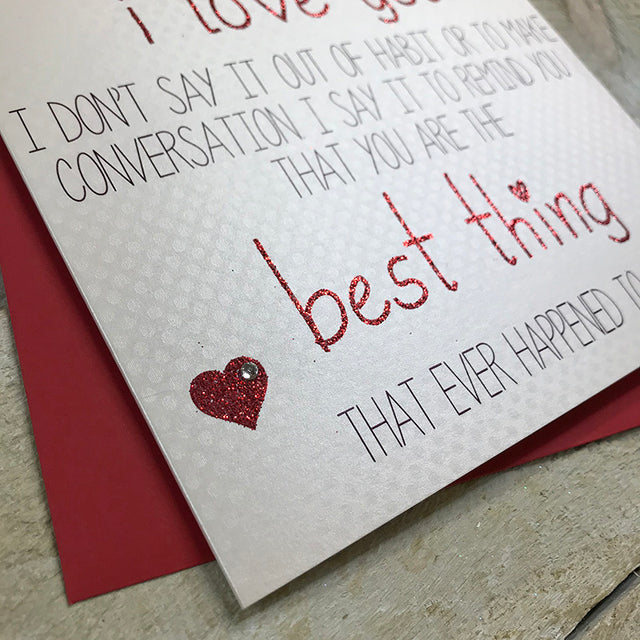 i love you
I DON'T SAY IT OUT OF HABIT OR TO MAKE
CONVERSATION I SAY IT TO REMIND YOU
THAT YOU ARE THE
best thing
THAT EVER HAPPENED TO